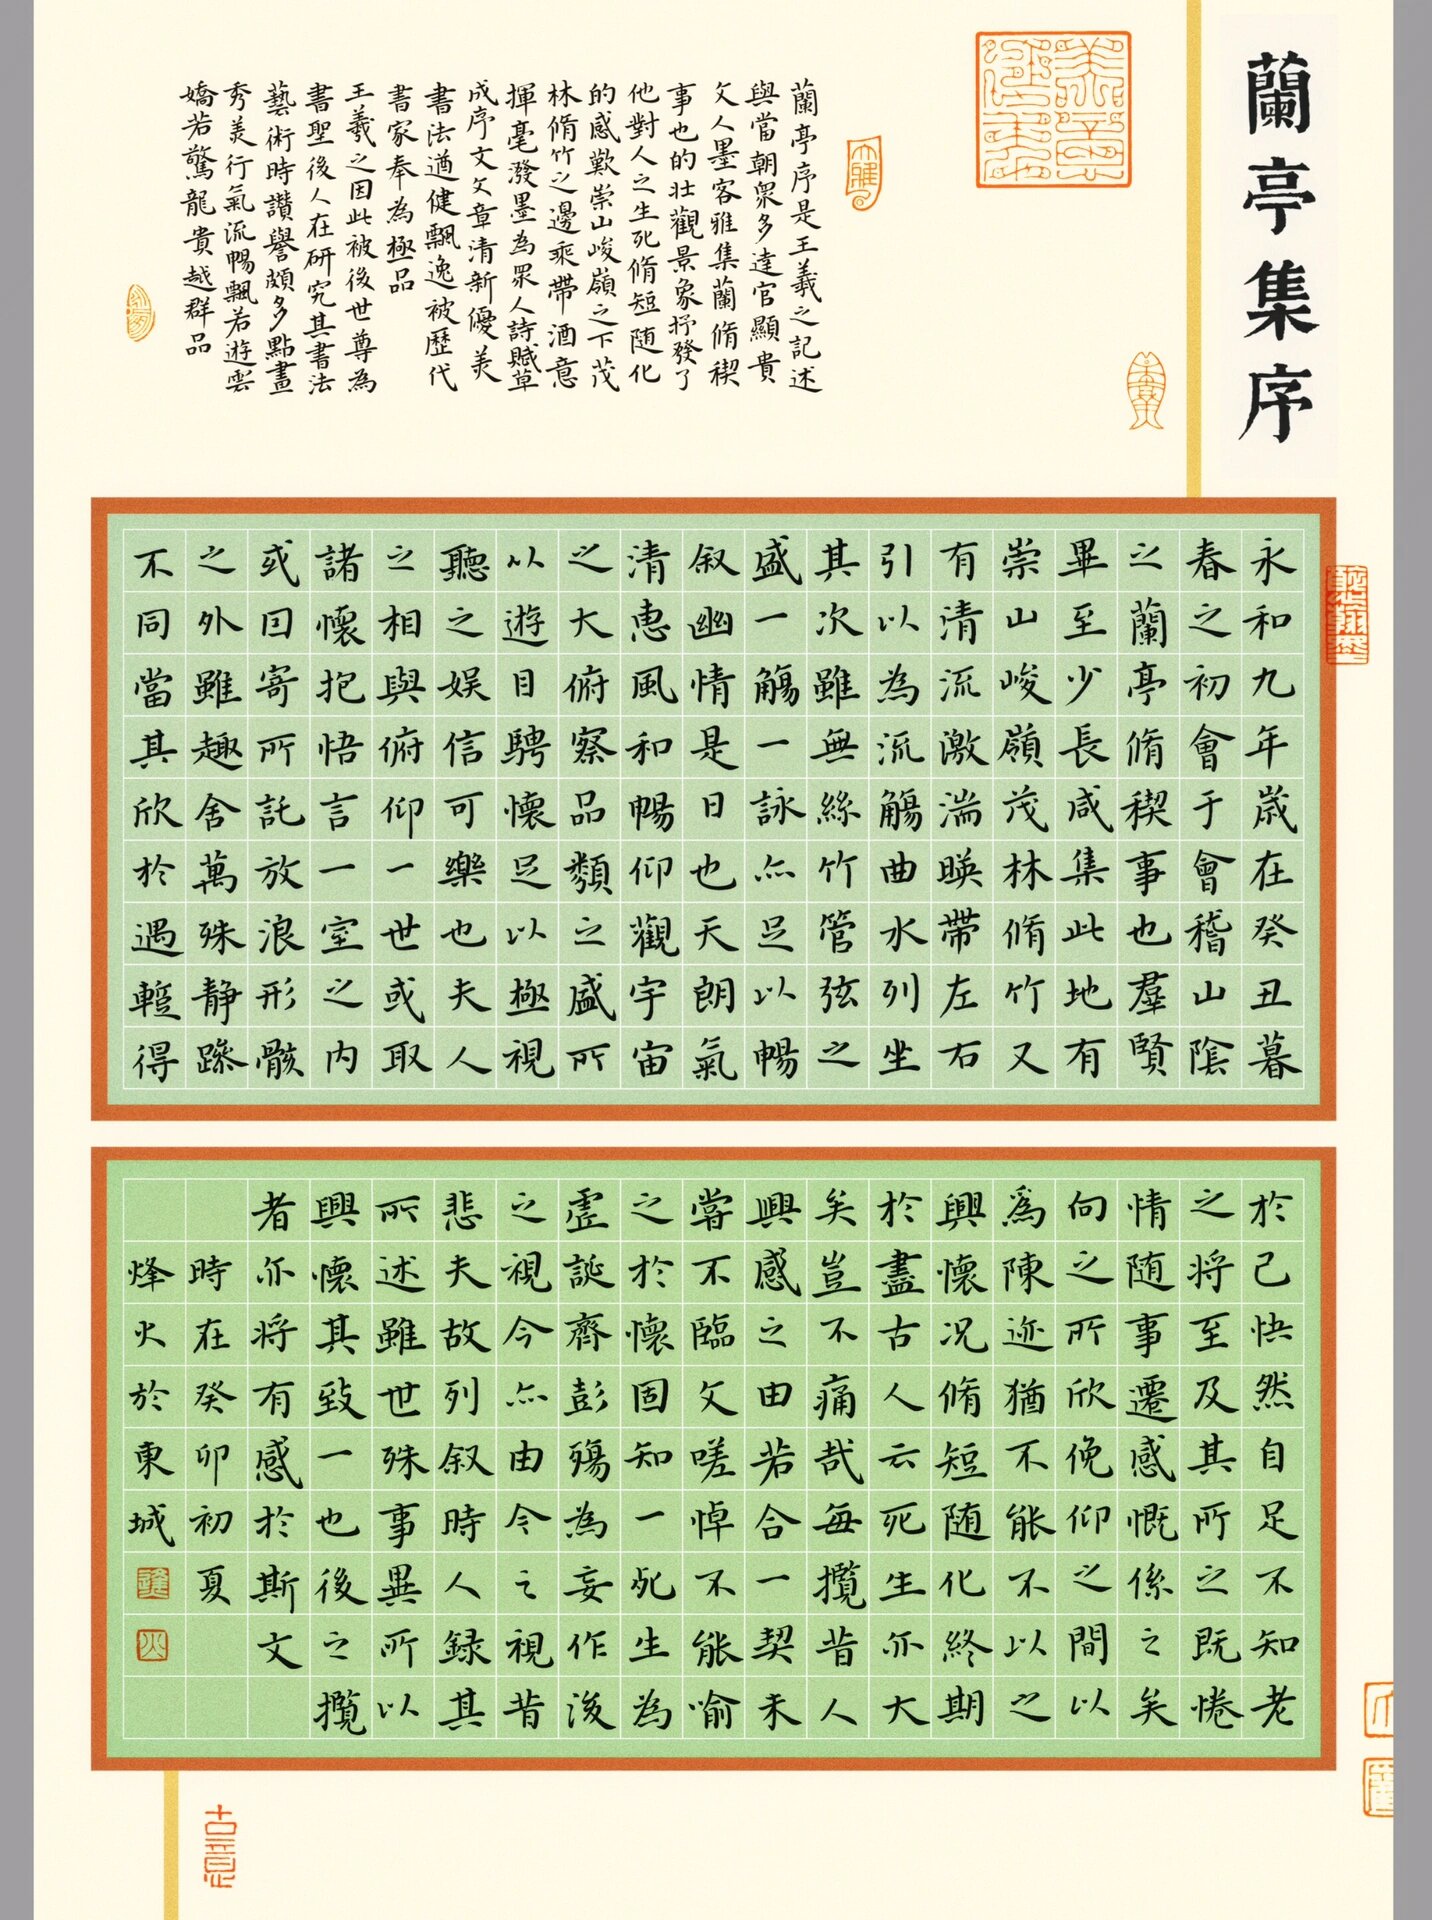 蘭亭集序
蘭亭序是王羲之記述
與當朝眾多達官顯貴
文人墨客雅集蘭脩稧
事也的壯觀景象抒發了
他對人之生死脩短随化
的感歎崇山峻嶺之下茂
林脩竹之邊乘帶酒意
揮毫潑墨為眾人詩賦草
成序文文章清新優美
書法遒健飄逸被歷代
書家奉為極品
王羲之因此被後世尊為
書聖後人在研究其書法
藝術時讚譽頗多點畫
秀美行氣流暢飄若遊雲
嬌若驚龍貴越群品
大雅
永和九年歲在癸丑暮
春之初會于會稽山陰
之蘭亭脩稧事也羣賢
畢至少長咸集此地有
崇山峻嶺茂林脩竹又
有清流激湍暎帶左右
引以為流觴曲水列坐
其次雖無絲竹管弦之
盛一觴一詠亦足以暢
叙幽情是日也天朗氣
清惠風和暢仰觀宇宙
之大俯察品類之盛所
以遊目騁懷足以極視
聽之娛信可樂也夫人
之相與俯仰一世或取
諸懷抱悟言一室之內
或因寄所託放浪形骸
之外雖趣舍萬殊静躁
不同當其欣於遇蹔得
於己怏然自足不知老
之將至及其所之既惓
情随事遷感慨係之矣
向之所欣俛仰之間以
為陳迹猶不能不以之
興懷况脩短随化終期
於盡古人云死生亦大
矣豈不痛哉每攬昔人
興感之由若合一契未
嘗不臨文嗟悼不能喻
之於懷固知一死生為
虛誕齊彭殤為妄作後
之視今亦由今之視昔
悲夫故列叙時人錄其
所述雖世殊事異所以
興懷其致一也後之攬
者亦將有感於斯文
時在癸卯初夏
烽火於東城
古意